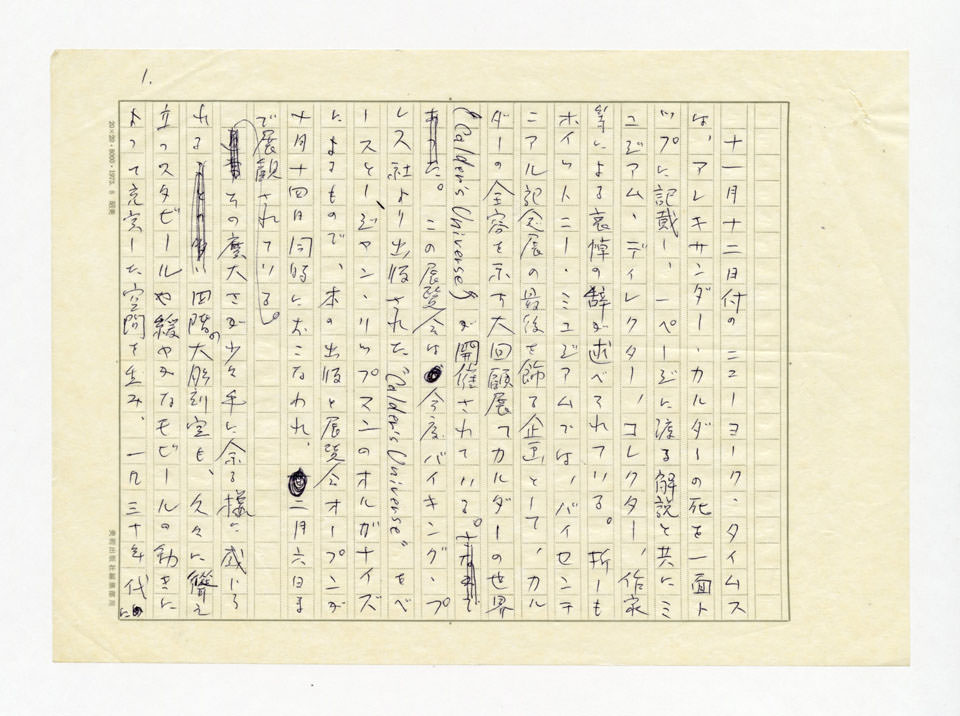 1.
十一月十二日付のニューヨーク・タイムス
は、アレキサンダー・カルダーの死を一面ト
ップに記載し、一ページに渡る解説と共にミ
ュジアム・ディレクター、コレクター、作家
等による哀悼の辞が述べられている。折しも
ホイットニー・ミュジアムでは、バイセンテ
ニアル記念展の最後を飾る企画として、カル
ダーの全容を示す大回顧展『カルダーの世界
(Calder's Universe)』が開催されている。
この展覧会は今度バイキング・プ
レス社より出版された“Calder's Universe”をベ
ースとし、ジャン・リップスンのオルガナイズ
によるもので、本の出版と展覧会オープンが
十月十四日同時におこなわれ、二月六日ま
で展観されている。
その厖大さが少々手に余る様に感じら
れる四階の大彫刻室も、久々に聳え
立つスタビールや緩やかなモビールの動きに
よって充実した空間を生み、一九三十年代に
20×20・8000・1975. 8 昭美
美術出版社編集部用